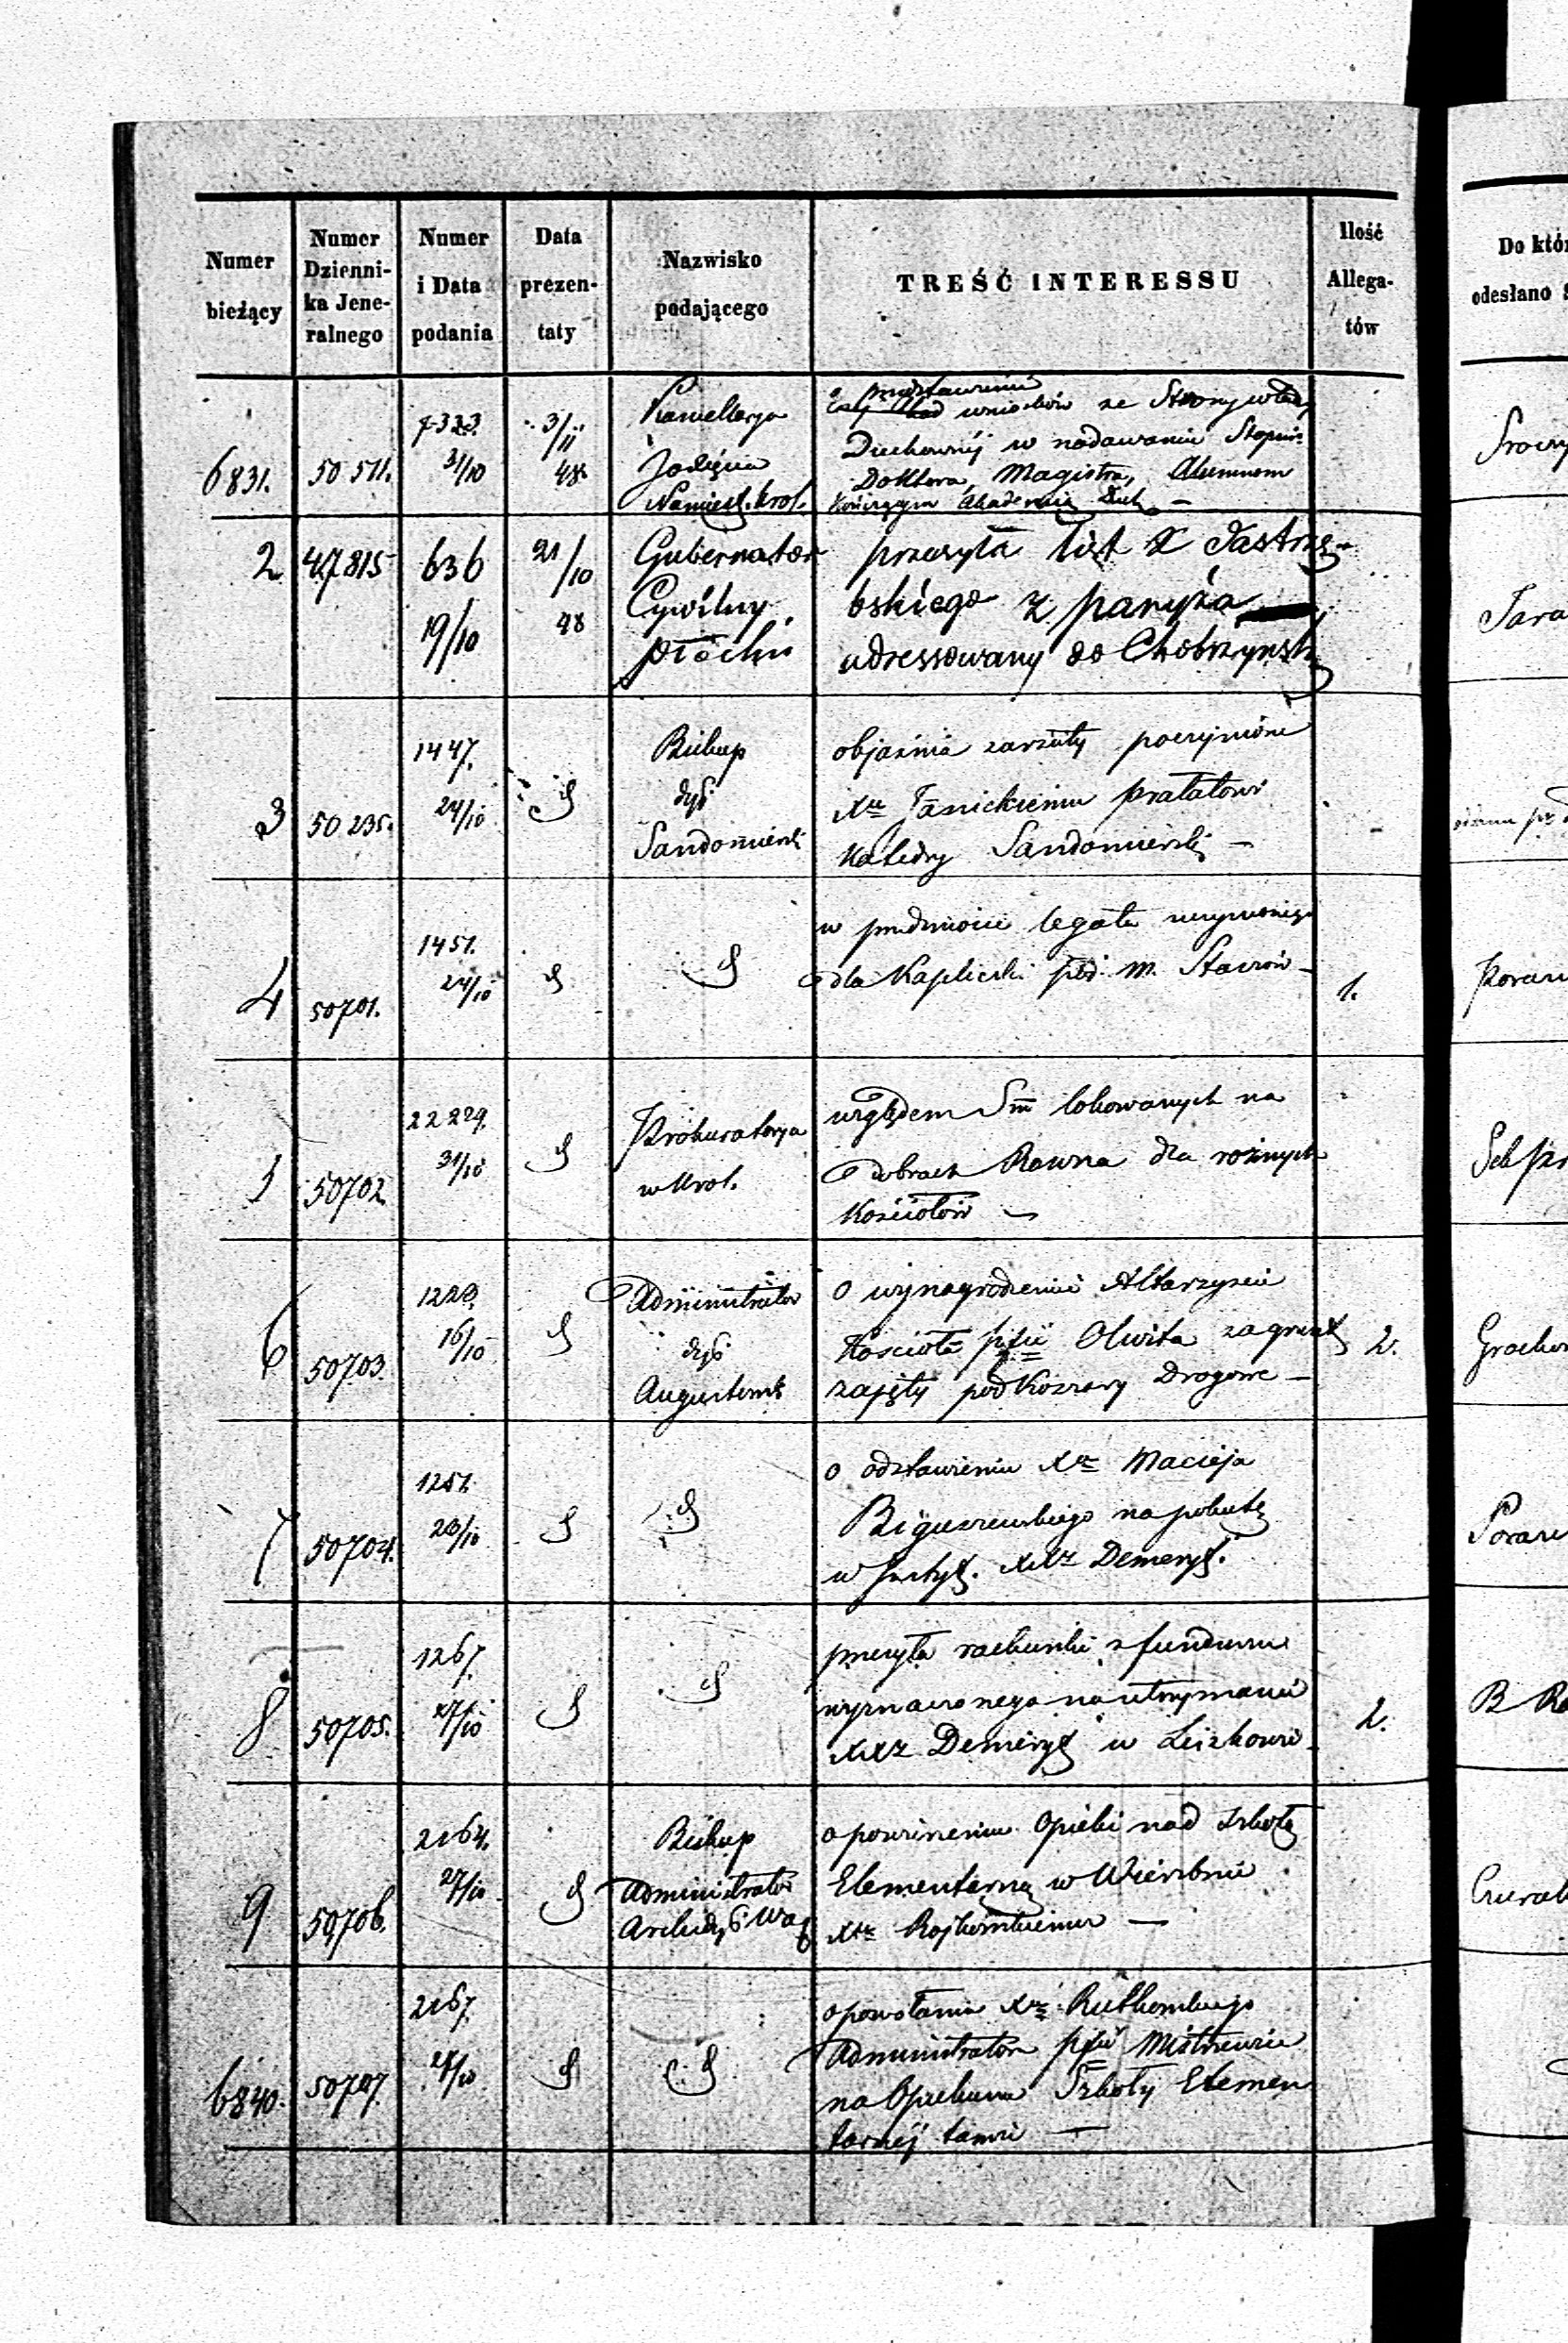 Numer bieżący
Numer Dzienni-ka Jene-ralnego
Numer i Data podania
Data prezen-taty
Nazwisko podającego
TREŚĆ INTERESSU
Ilość Allega-tów
Do któ
odesłano
6831. 50511. 7323. 31/10 3/11 48.
Kancellarya
Jo Xięcia
Namiest. Krol.
przedstawienie
wniosków ze Strony władzy
Duchownéj w nadawaniu Stopni
Doktora, Magistra, Alumnom
Kończącym Akademię Duch. —
2 47815 636 19/10 21/10 48
Gubernator
Cywilny
Płocki
przesyła list X Jastrzę-
bskiego z paryża
adressowany do Chobrzyńsk
3 50235. 1447. 24/10
Biskup
dyś
Sandomierski
objaśnia zarzuty poczynione
Xu Janickiemu prałatowi
Katedry Sandomierskiej —
4 50701. 1451. 24/10
w przedmiocie legatu uczynionego
dla Kapliczki pod m. 1.
5 50702 22229. 31/10
Prokuratorya
w Krol.
względem Sm lokowanych na
dobrach Rawna dla rożnych
Kościołów —
6 50703. 1229. 16/10
Administrator
dyś
Augustows
o wynagrodzenie Altarzyście
Kościoła pfii Olwita za grunt 2.
zajęty pod Koszary Drogowe —
7 50704. 1257. 23/10
o odstawieniu Xa Macieja
Biguszewskiego na pokutę
w Instyt. XXz Demeryt.
8 50705. 1267. 27/10
przesyła rachunki z funduszu
wyznaczonego na utrzymanie
XXz Demeryt w Liszkowie 2.
9 50706. 2164. 27/10
Biskup
Administrator
Archidyś War
o poruczeniu Opieki nad szkołą
Elementarną w Wierzbnie
Xu —
6840. 50707. 2167. 27/10
o powołaniu Xa Rutkowskiego
Administratora pfii Mistrzewice
na Opiekuna Szkoły Elemen
tarnéj tamże —